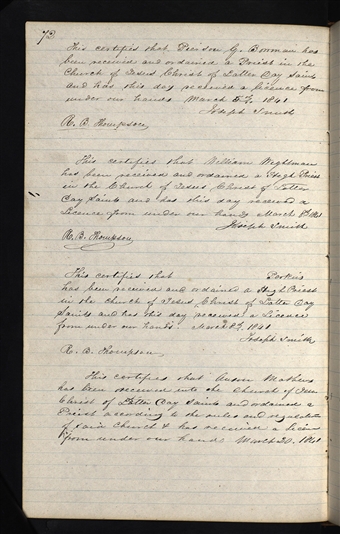 72
This certifies that G. Bowman has
been received and ordained a Priest in the
Church of Jesus Christ of Latter Day Saints
and has this day received a Licence from
under our hands March 1841
Joseph Smith
R. B. Thompson
This certifies that William Wightman
has been received and ordained a High Priest
in the Church of Jesus Christ of Latter
Day Saints and has this day received a
Licence from under our hands March 1841
Joseph Smith
R. B. Thompson
This certifies that Perkins
has been received and ordained a High Priest
in the Church of Jesus Christ of Latter Day
Saints and has this day received a Licence
from under our hands. March 1841
Joseph Smith
R. B. Thompson
This certifies that Anson Mathews
has been received into the Church of Jesus
Christ of Latter Day Saints and ordained a
Priest according to the rules and regulations
of said Church & has received a Licence
from under our hands March 20. 1841